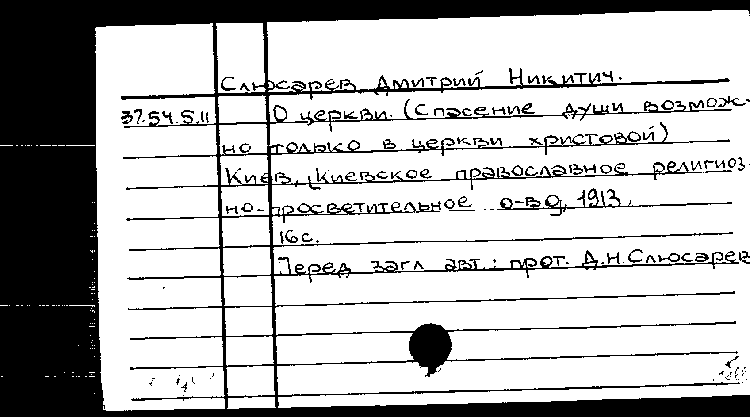 Слюсарев Дмитрий Никитич.
37.54.5.11 О церкви. (Спасение души возмож-
но только в церкви христовой)
Киев, Киевское православное религиоз-
но-просветительное о-во, 1913.
16 с.
Перед загл авт.: прот. Д.Н. Слюсарев